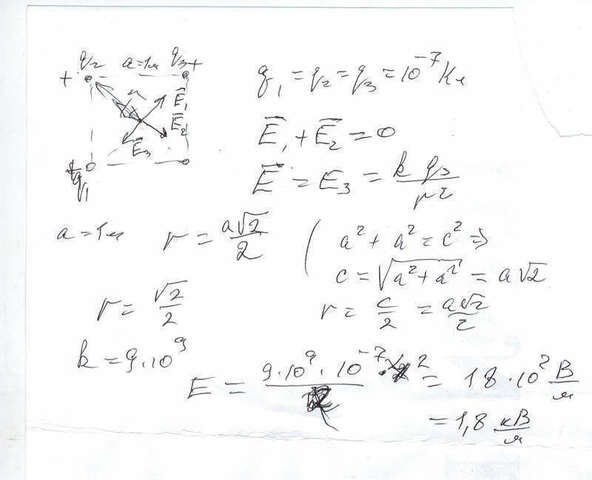 q2 a=1м q3+
+
E⃗1
E⃗2
E⃗3
q1
q1 = q2 = q3 = 10^-7 Кл
E⃗1 + E⃗2 = 0
E⃗ = E3 = k q3 / r^2
a = 1м r = a√2 / 2 ( a^2 + a^2 = c^2 ⇒
c = √(a^2 + a^2) = a√2
r = √2 / 2 r = c / 2 = a√2 / 2
k = 9·10^9
E = 9·10^9·10^-7·2 = 18·10^2 В/м
= 1,8 кВ/м